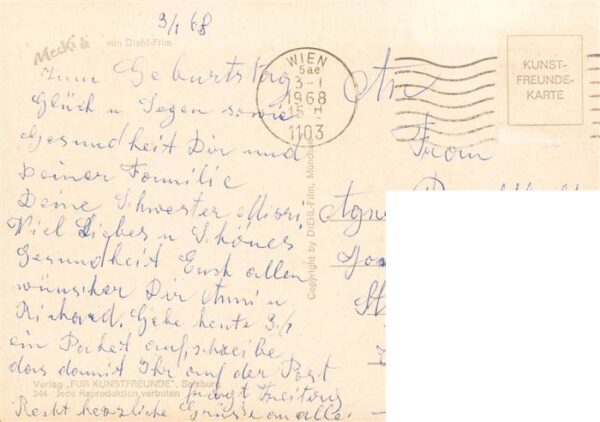 3/1 68
Mecki
von Diehl-Film
Zum Geburtstag
Glück u Segen sowie
Gesundheit Dir und
Deiner Familie
Deine Schwester Missi
Viel Liebes u Schönes
Gesundheit Euch allen
wünschen Dir Anni u
Richard. Gebe heute 3/1
ein Paket auf, schreibe
das damit Ihr auf der Post
fragt Freitag
Recht herzliche Grüsse an alle.
Verlag „FÜR KUNSTFREUNDE", Salzburg
344 - Jede Reproduktion verboten
Copyright by DIEHL-Film, München
WIEN
5ae
3-1
1968
15
1103
KUNST-
FREUNDE-
KARTE
An
From